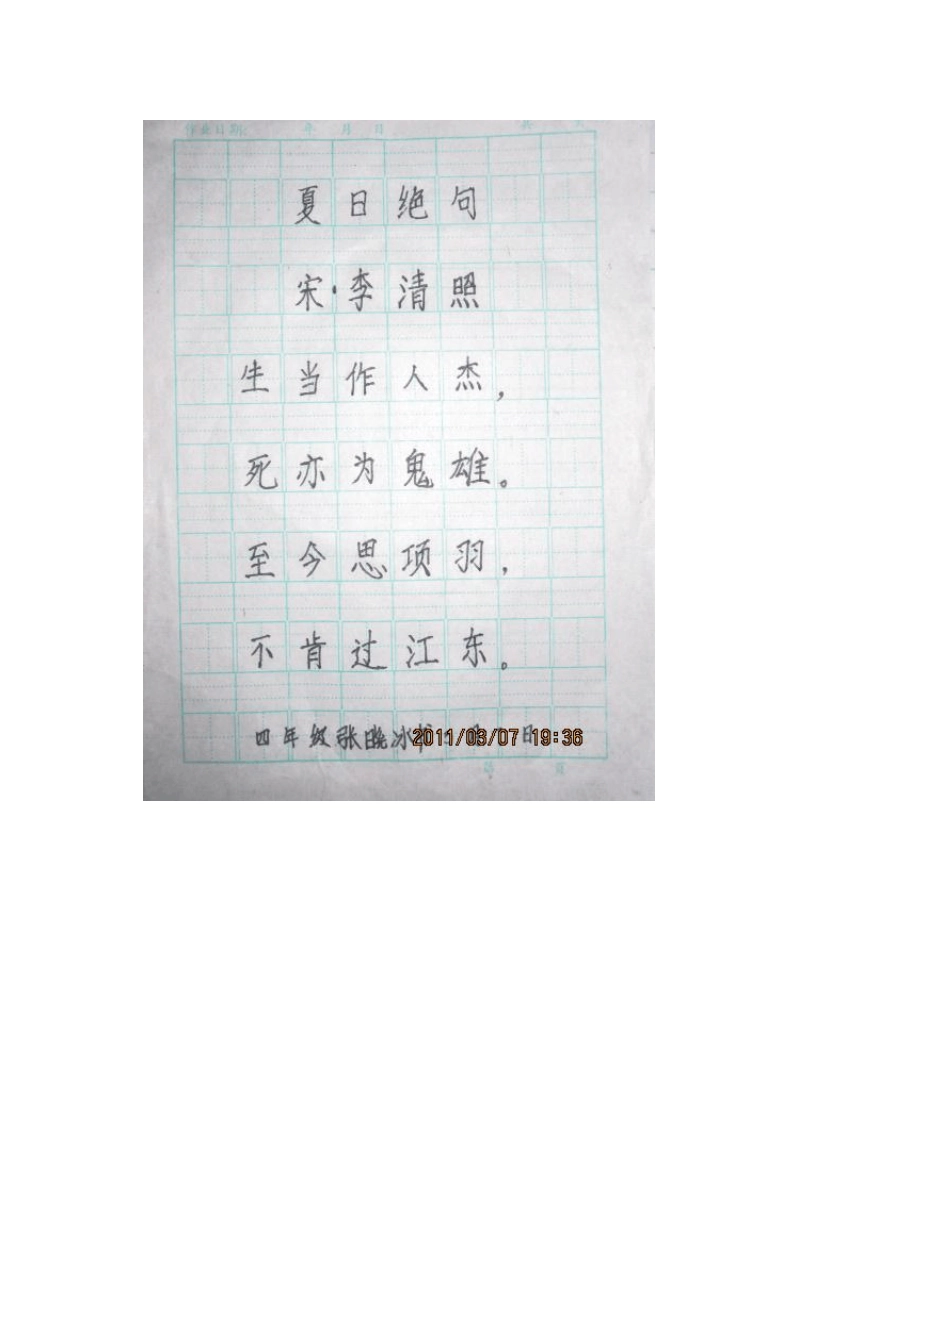 作业日期: 年 月 日 共
夏日绝句
宋·李清照
生当作人杰，
死亦为鬼雄。
至今思项羽，
不肯过江东。
四年级张晓冰 日
2011/03/07 19:36
第 页